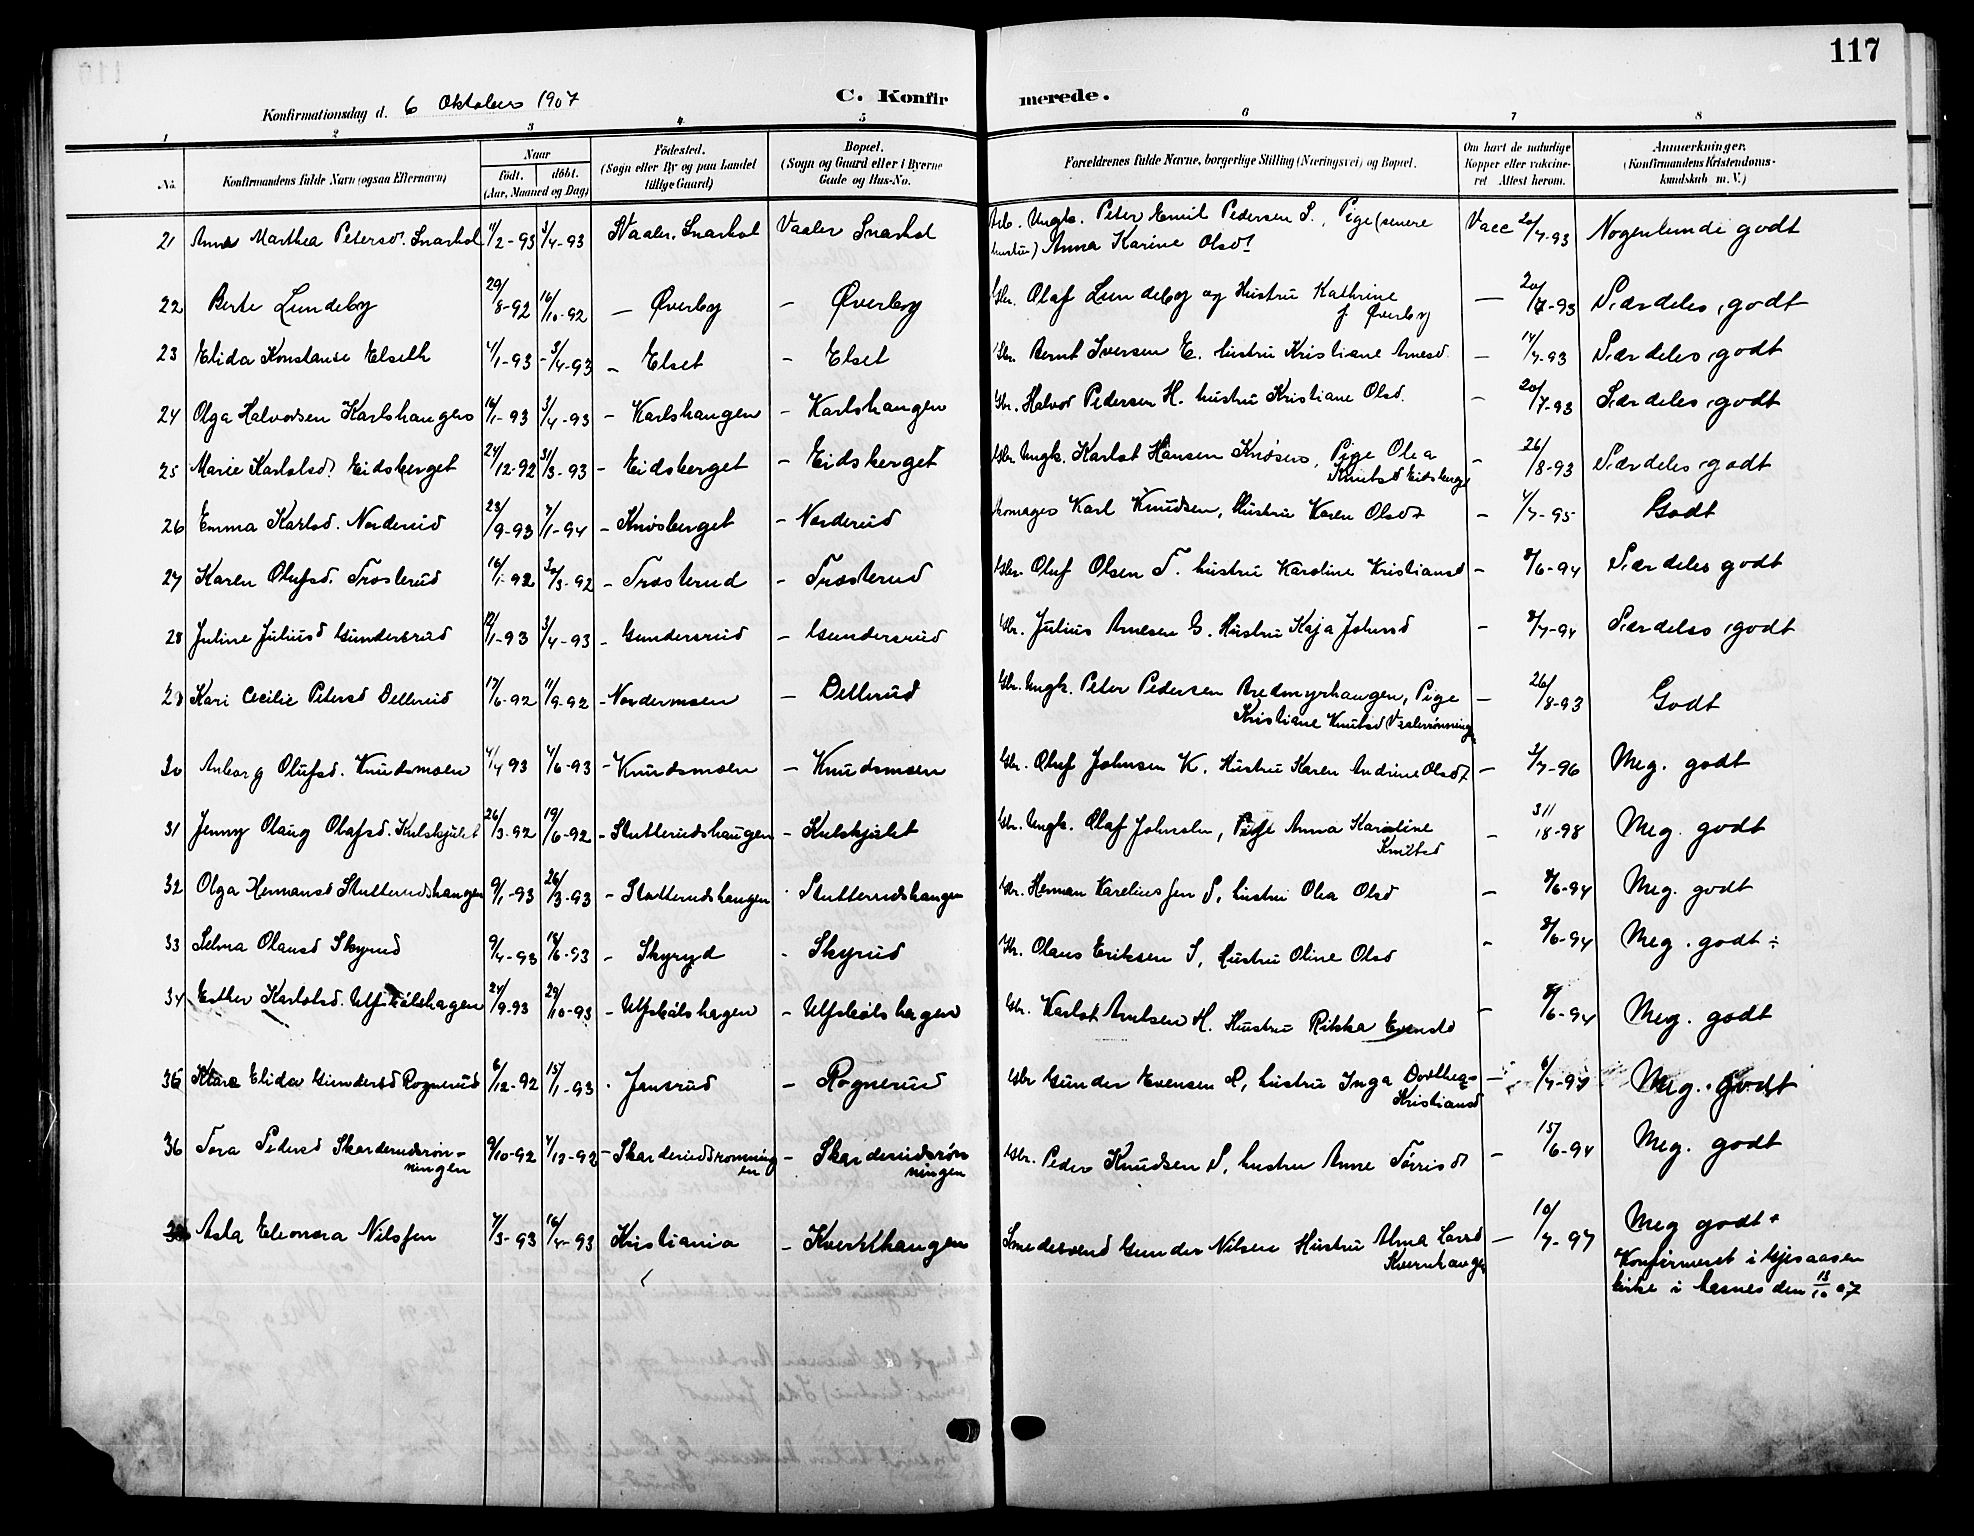 117
Konfirmationsdag d. 6 Oktober 1907
C. Konfirmerede.
1 2 3 4 5 6 7 8
No. Konfirmandens fulde Navn (ogsaa Efternavn) Naar født. døbt. (Aar, Maaned og Dag) Fødested. (Sogn eller By og paa Landet tillige Gaard) Bopæl. (Sogn og Gaard eller i Byerne Gade og Hus-No. Forældrenes fulde Navne, borgerlige Stilling (Næringsvei) og Bopæl. Om havt de naturlige Kopper eller vaccineret Attest herom. Anmerkninger. (Konfirmandens Kristendomskundskab m. V.)
21 Anna Marthea Petersd. Snarhol 4/2-93 3/4-93 Vaaler, Snarhol Vaaler Snarhol Arb. Ungk. Peter Emil Pedersen S., Pige (senere
hustru) Anna Karine Olsdt Vacc 20/7-93 Nogenlunde godt
22 Berte Lundeby 29/8-92 16/10-92 – Øverby – Øverby Gbr. Olaf Lundeby og Hustru Kathrine
f. Øverby – 20/7-93 Særdeles godt
23 Elida Konstanse Elseth 4/1-93 3/4-93 – Elset – Elset Gbr. Bernt Iversen E. hustru Kristiane Arnesd. – 14/7-93 Særdeles godt
24 Olga Halvorsen Karlshaugen 16/1-93 3/4-93 – Karlshaugen – Karlshaugen Gbr. Halvor Pedersen H. hustru Kristiane Olsd. – 20/7-93 Særdeles godt
25 Marie Karlotsd. Eidsberget 24/12-92 31/3-93 – Eidsberget – Eidsberget Gbr. Ungk. Karlot Hansen Knøsen, Pige Olea
Knutsd Eidsberget – 26/8-93 Særdeles godt
26 Emma Karlsd. Norderud 23/9-93 7/1-94 – Knøsberget – Norderud Skomager Karl Knudsen, Hustru Karen Olsdt – 4/7-95 Godt
27 Karen Olufsd. Trosterud 16/1-92 30/3-92 – Trosterud – Trosterud Gbr. Oluf Olsen T. hustru Karoline Kristiansd – 8/6-94 Særdeles godt
28 Juline Juliusd Gundersrud 12/1-93 3/4-93 – Gundersrud – Gundersrud Gbr. Julius Arnesen G. Hustru Kaja Johnsd – 8/7-94 Særdeles godt
29 Kari Cecilie Petersd Dellerud 17/6-92 11/9-92 – Nordermoen – Dellerud Gbr. Ungk. Peter Pedersen Bredmyrhaugen, Pige
Kristiane Knutsd – 26/8-93 Godt
30 Anborg Olufsd. Knudsmoen 4/4 93 4/6-93 – Knudsmoen – Knudsmoen Gbr. Oluf Johnsen K. Hustru Karen Andrine Olsdt – 3/7-96 Meg. godt
31 Jenny Olaug Olafsd. Kulskjulet 26/3-92 19/6-92 – Stutterudshaugen – Kulskjulet Gbr. Ungk. Olaf Johnsen, Pige Anna Karoline
Knutsd – 18-98 Meg. godt
32 Olga Hermansd Stutterudshaugen 9/1-93 26/3-93 – Stutterudshaugen Stutterudshaugen Gbr. Herman Kareliussen S, hustru Olea Olsd – 8/6-94 Meg. godt
33 Selma Olausd Skyrud 9/4-93 18/6-93 – Skyryd – Skyrud Gbr. Olaus Eriksen S, Hustru Oline Olsd – 8/6-94 Meg. godt ÷
34 Esther Karlotsd. Ulfsbölshagen 24/9-93 29/10-93 – Ulfsbölshagen – Ulfsbölshagen Gbr. Karlot Arnesen H. Hustru Rikka Evensd – 8/6-94 Meg. godt
35 Klara Elida Gundersd Rognerud 6/12-92 15/1-93 Jansrud – Rognerud Gbr Gunder Evensen R, hustru Inga Dorthea
Kristiansd – 6/7-97 Meg. godt
36 Tora Pedersd Skarderudsrøn-
ningen 9/10-92 4/12-92 – Skarderudsrønning
en – Skarderudsrøn
ningen Gbr. Peder Knudsen S, hustru Anne Törrisdt – 15/6-94 Meg. godt
Asta Eleonora Nilssen 7/3-93 16/4-93 Kristiania – Kvernhaugen Smedesvend Gunder Nilsen Hustru Alma Larsd
Kvernhaugen – 10/7-97 Meg godt +
Konfirmeret i Gjesaasen
kirke i Aasnes den 13/10 07